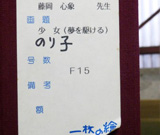 藤岡 心象 先生
画題
少女(夢を駆ける)
のり子
号数
F15
備考
額
一枚の絵